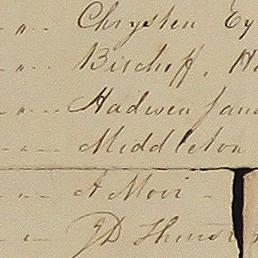 " Chrysten Ey
" Bischoff, H
" Hadwen Jam
" Middleton
" A Moir
" JD